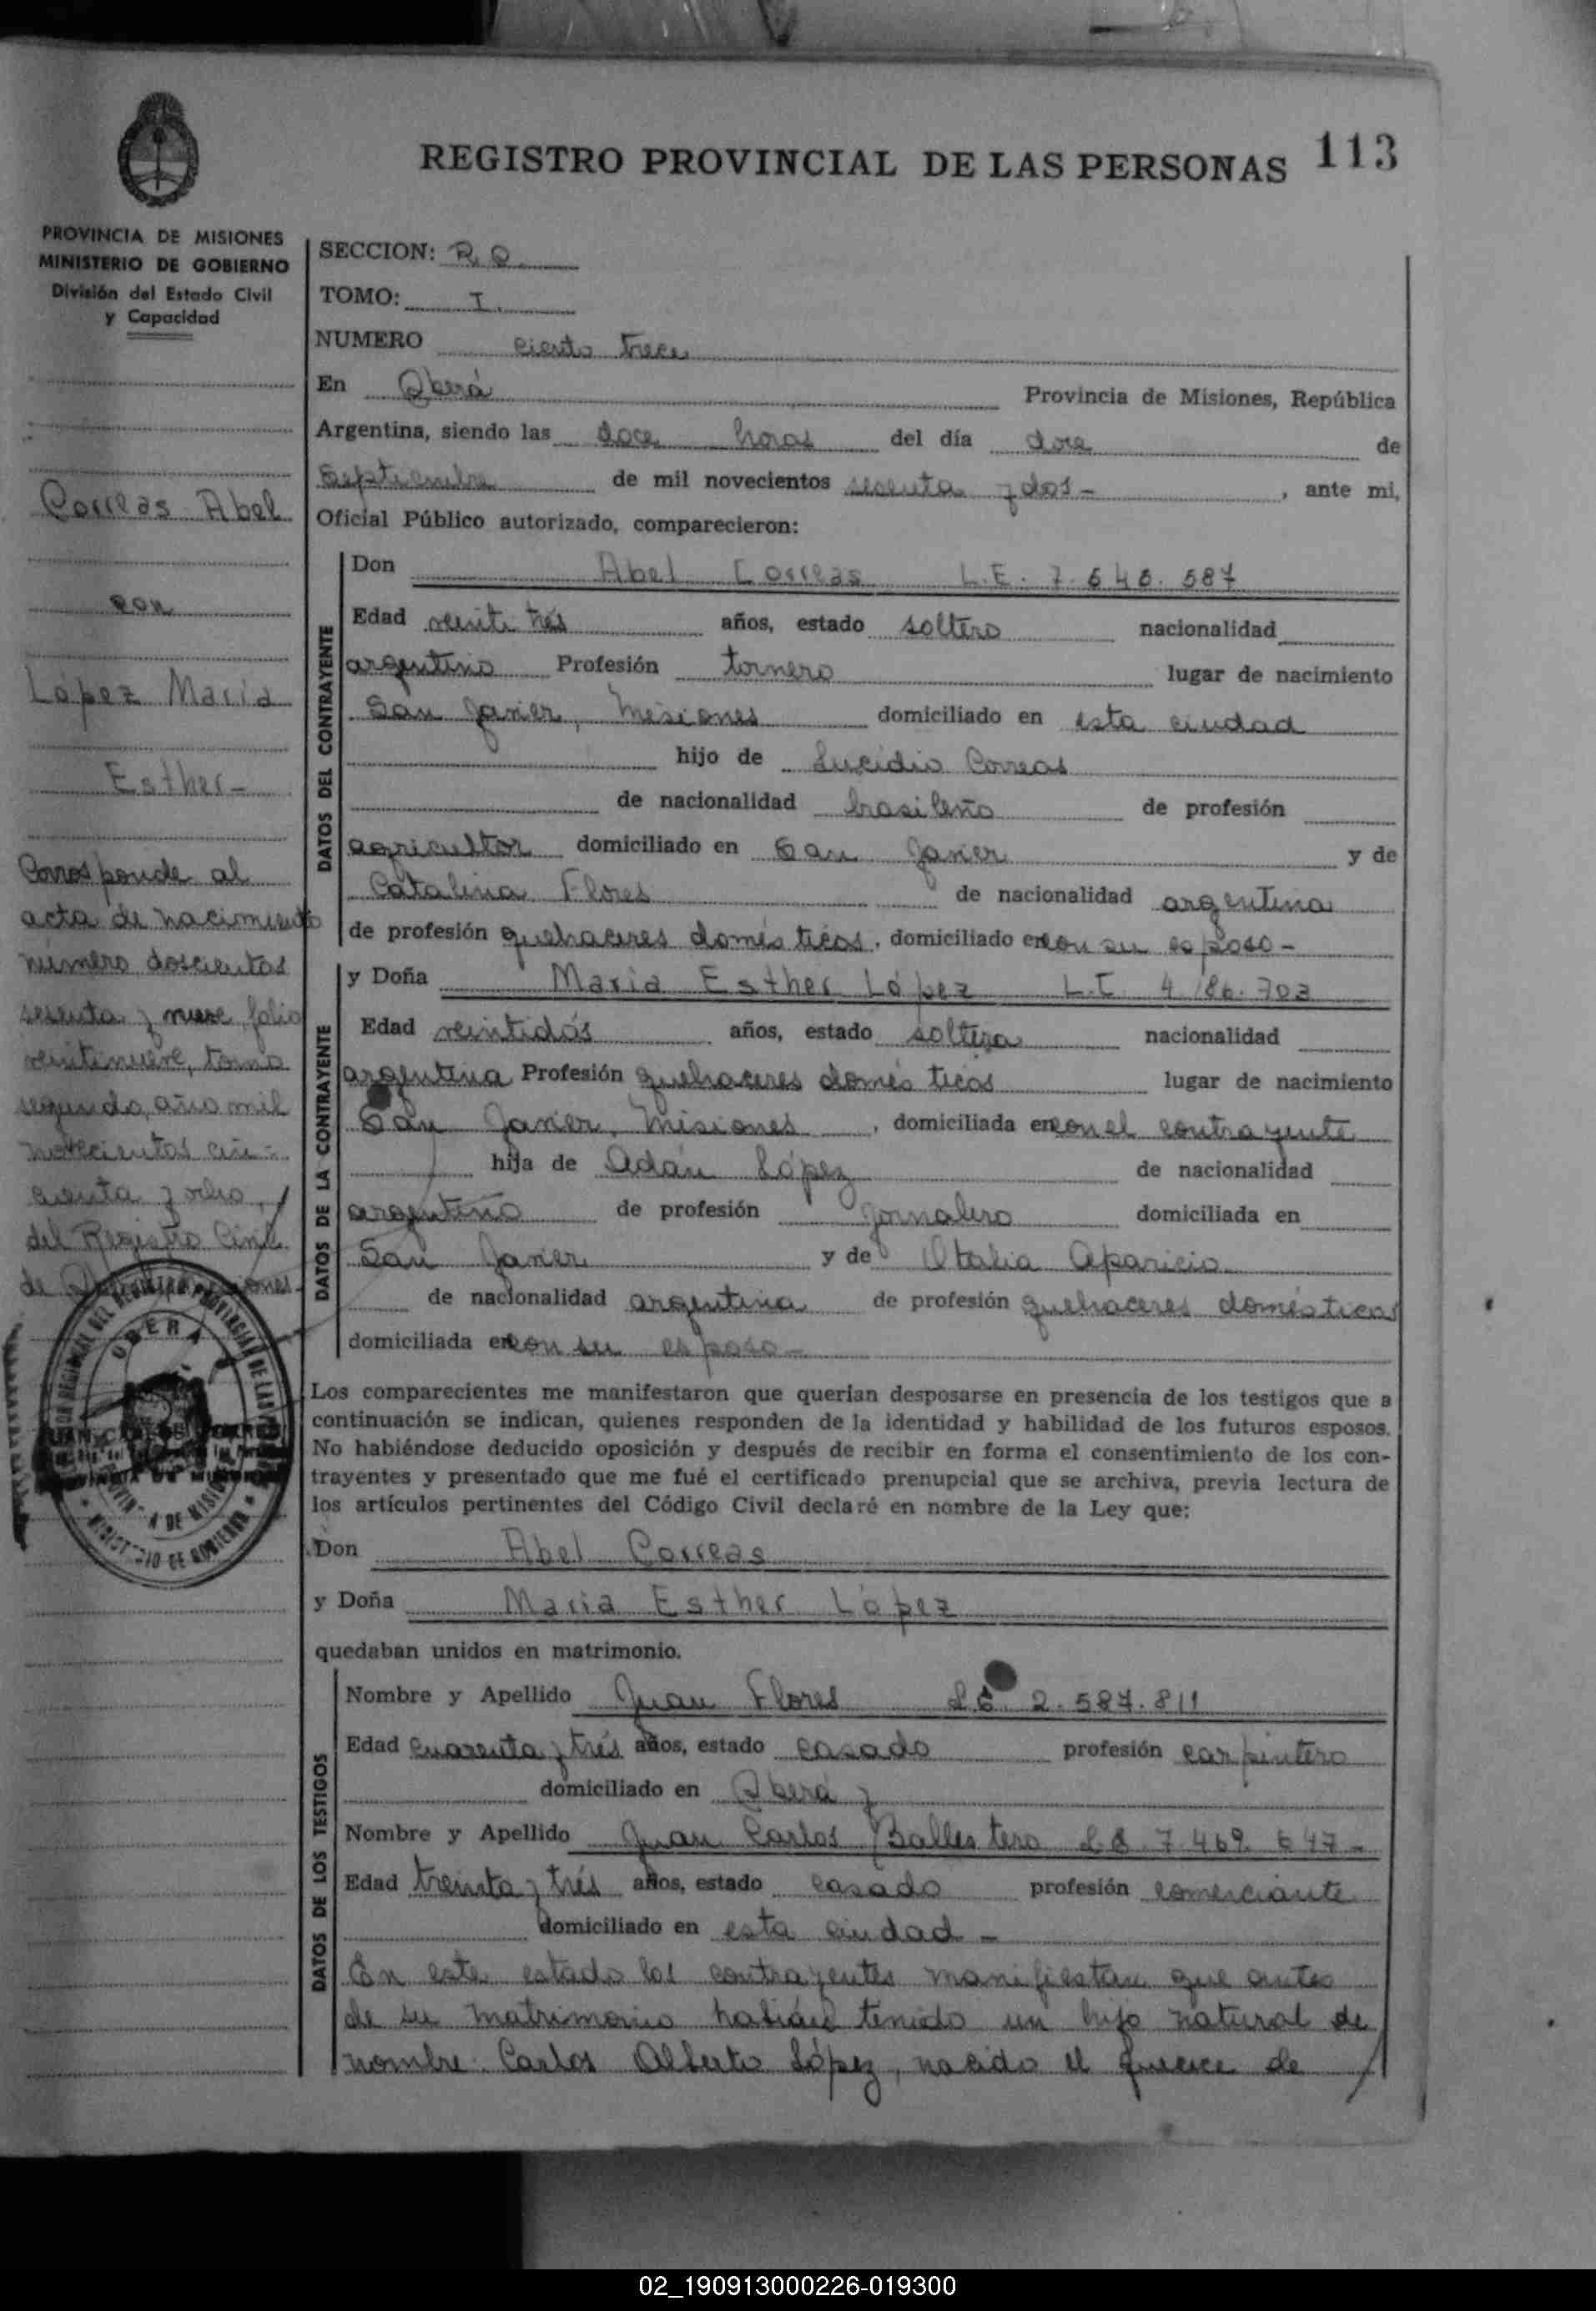 REGISTRO PROVINCIAL DE LAS PERSONAS 113
PROVINCIA DE MISIONES
MINISTERIO DE GOBIERNO
División del Estado Civil
y Capacidad
Correas Abel
con
López María
Esther-
Corresponde al
acta de nacimiento
número doscientos
sesenta y nueve, folio
veintinueve, tomo
segundo, año mil
novecientos cin-
cuenta y ocho,
del Registro Civil
de
OBERA
SECCION: R.O.
TOMO: I.
NUMERO ciento trece
En Oberá Provincia de Misiones, República
Argentina, siendo las doce horas del día doce de
Septiembre de mil novecientos sesenta y dos- , ante mi,
Oficial Público autorizado, comparecieron:
DATOS DEL CONTRAYENTE
Don Abel Correas L.E. 7.546.587
Edad veinte trés años, estado soltero nacionalidad
argentino Profesión tornero lugar de nacimiento
San Javier, Misiones domiciliado en esta ciudad
hijo de Lucidio Correas
de nacionalidad brasileño de profesión
agricultor domiciliado en San Javier y de
Catalina Flores de nacionalidad argentina
de profesión quehaceres domésticos, domiciliado en con su esposo-
DATOS DE LA CONTRAYENTE
y Doña María Esther López L.C. 4.186.703
Edad veintidós años, estado soltera nacionalidad
argentina Profesión quehaceres domésticos lugar de nacimiento
San Javier, Misiones, domiciliada en con el contrayente
hija de Adán López de nacionalidad
argentino de profesión jornalero domiciliada en
San Javier y de Otalia Aparicio
de nacionalidad argentina de profesión quehaceres domésticos
domiciliada en con su esposo-
Los comparecientes me manifestaron que querían desposarse en presencia de los testigos que a
continuación se indican, quienes responden de la identidad y habilidad de los futuros esposos.
No habiéndose deducido oposición y después de recibir en forma el consentimiento de los con-
trayentes y presentado que me fué el certificado prenupcial que se archiva, previa lectura de
los artículos pertinentes del Código Civil declaré en nombre de la Ley que:
Don Abel Correas
y Doña María Esther López
quedaban unidos en matrimonio.
DATOS DE LOS TESTIGOS
Nombre y Apellido Juan Flores L.E 2.587.811
Edad cuarenta y trés años, estado casado profesión carpintero
domiciliado en Oberá y
Nombre y Apellido Juan Carlos Ballestero L.E. 7.469.647-
Edad treinta y trés años, estado casado profesión comerciante
domiciliado en esta ciudad-
En este estado los contrayentes manifiestan que antes
de su matrimonio habían tenido un hijo natural de
nombre Carlos Alberto López, nacido el quince de
02_190913000226-019300